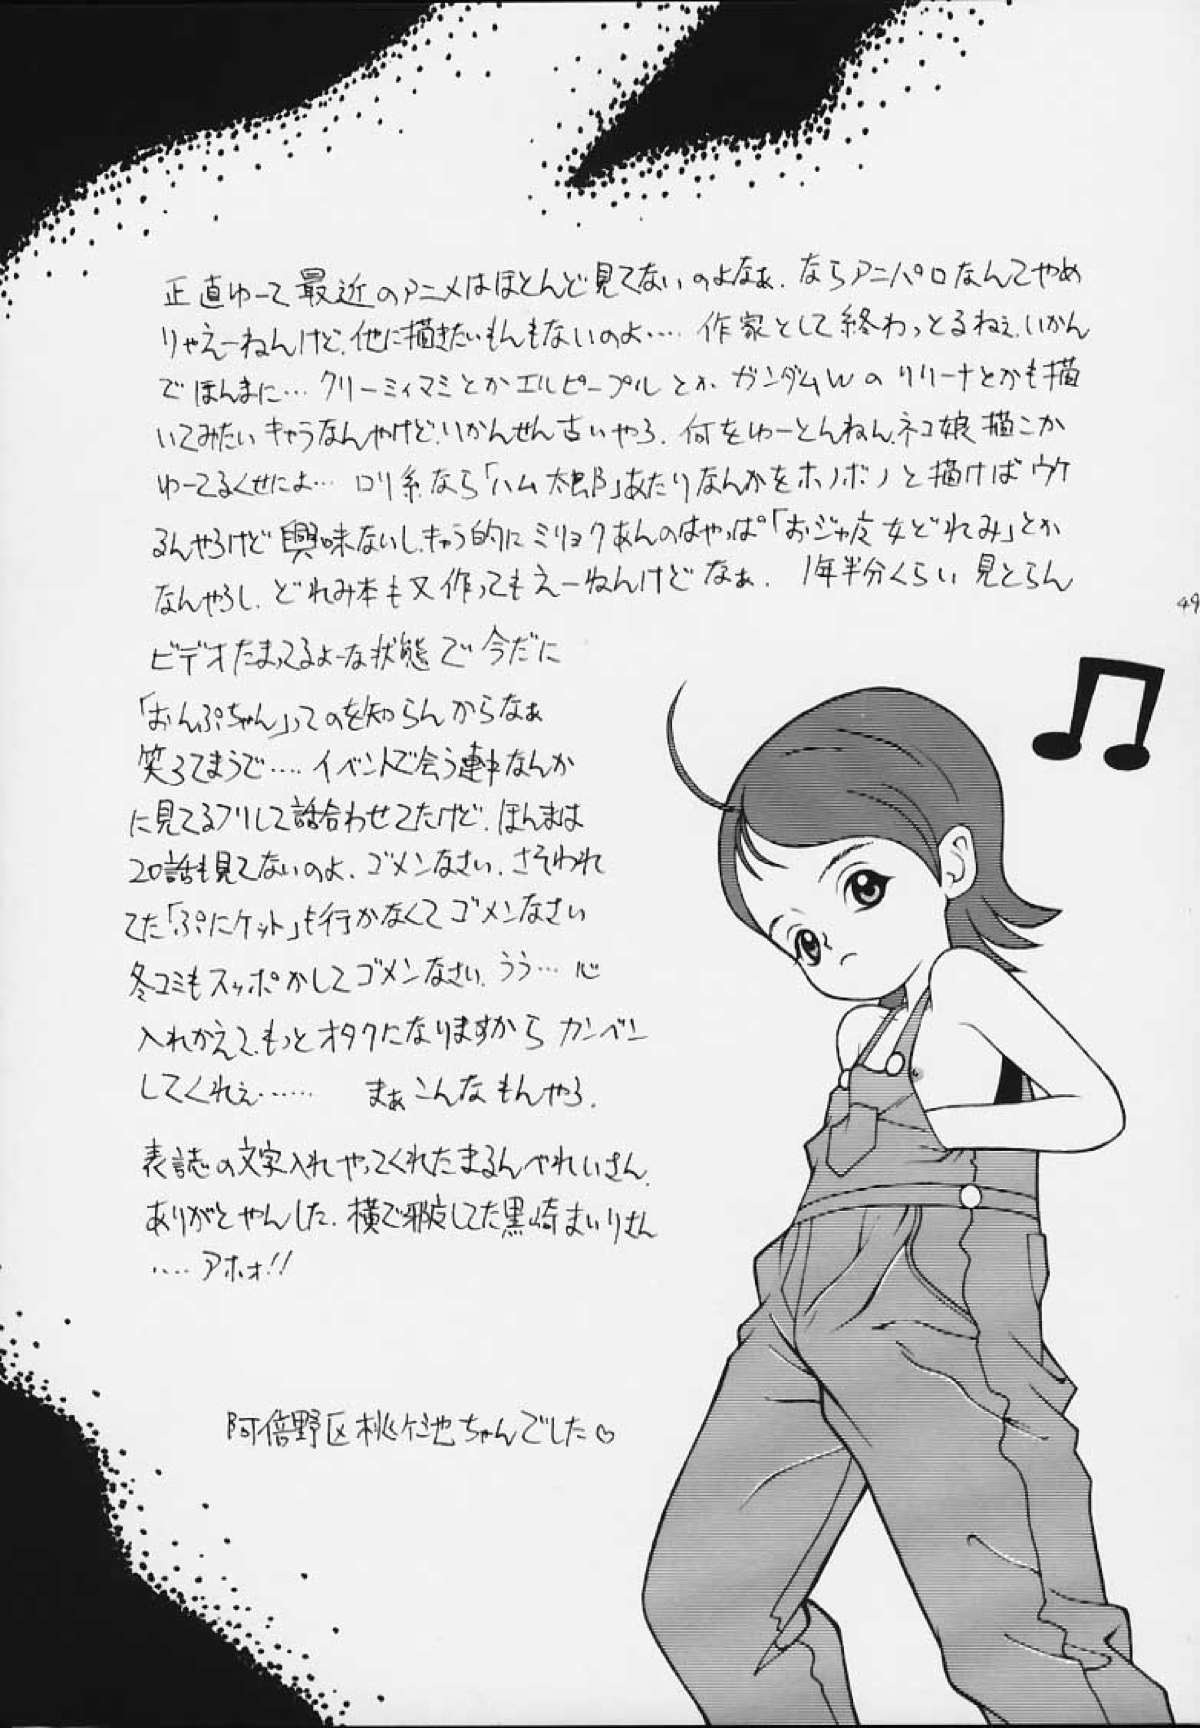 正直ゆーて最近のアニメはほとんど見てないのよなぁ、ならアニパロなんてやめ
りゃえーねんけど、他に描きたいもんもないのよ‥‥作家として終わっとるねぇ、いかん
でほんまに…クリーミィマミとかエルピープルとかガンダムWのリリーナとかも描
いてみたいキャラなんやけど、いかんせん古いやろ、何をゆーとんねん、ネコ娘描こか
ゆーてるくせによ…ロリ系なら「ハム太郎」あたりなんかをホノボノと描けばウケ
るんやろけど興味ないし、キャラ的にミリョクあんのはやっぱ「おジャ魔女どれみ」とか
なんやろし、どれみ本も又作ってもえーねんけどなぁ、1年半分くらい見とらん
49
ビデオたまってるよーな状態で今だに
「おんぷちゃん」ってのを知らんからなぁ
笑ろてまうで‥‥イベントで会う連中なんか
に見てるフリして話合わせてたけど、ほんまは
20話も見てないのよ、ゴメンなさい、さそわれ
てた「ぷにケット」も行かなくてゴメンなさい
冬コミもスッポかしてゴメンなさい、うぅ…心
入れかえて、もっとオタクになりますからカンベン
してくれぇ‥‥‥まぁこんなもんやろ、
表誌の文字入れやってくれたまるんべれいさん、
ありがとやんした、横で邪魔してた黒崎まいりさん
‥‥アホォ!!
阿倍野区桃ヶ池ちゃんでした♡